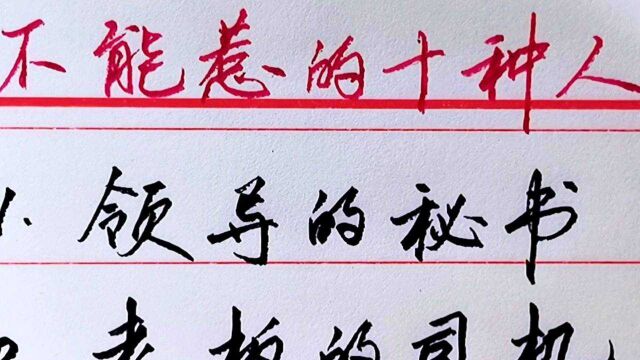 不能惹的十种人
1. 领导的秘书
2. 老板的司机